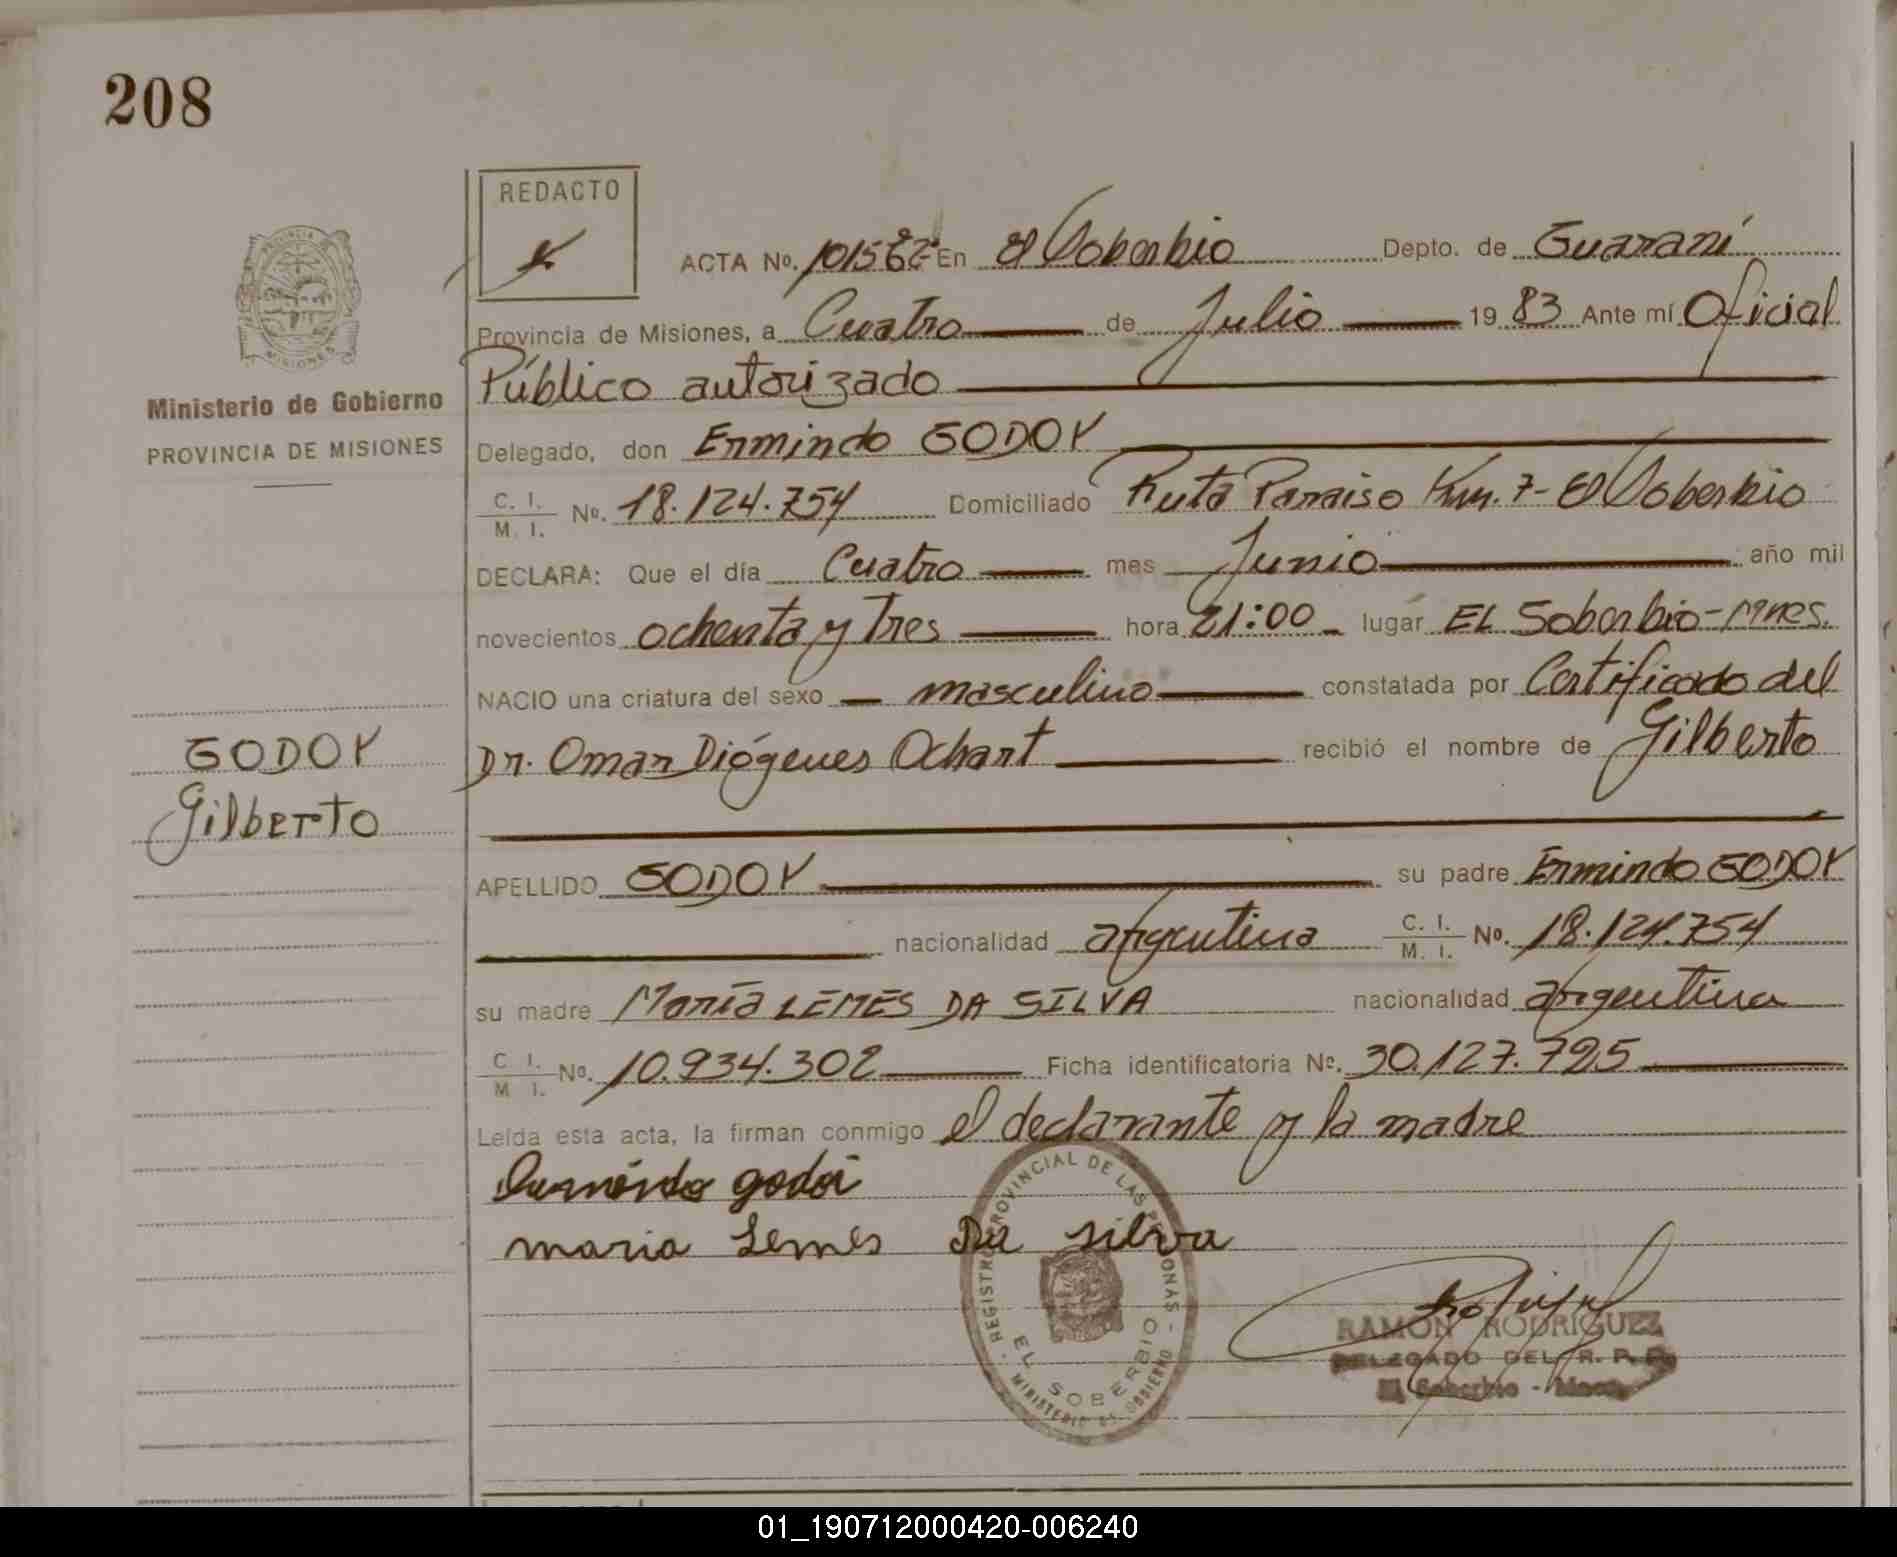 208
REDACTO
ACTA Nº. En El Soberbio Depto. de Guaraní
Provincia de Misiones, a Cuatro de Julio 1983 Ante mí Oficial
Público autorizado
Ministerio de Gobierno
PROVINCIA DE MISIONES
Delegado, don Ermindo GODOY
C. I.
M. I. Nº. 18.124.754 Domiciliado Ruta Paraiso Km. 7- El Soberbio
DECLARA: Que el día Cuatro mes Junio año mil
novecientos ochenta y Tres hora 21:00 lugar EL Soberbio-Mnes.
NACIO una criatura del sexo masculino constatada por Certificado del
Dr. Omar Diógenes Ochart recibió el nombre de Gilberto
GODOY
Gilberto
APELLIDO GODOY su padre Ermindo GODOY
nacionalidad argentina C. I.
M. I. Nº. 18.124.754
su madre María LEMES DA SILVA nacionalidad argentina
C. I.
M. I. Nº. 10.934.302 Ficha identificatoria Nº. 30.127.725
Leída esta acta, la firman conmigo el declarante y la madre
godoi
maria Lemes Da silva
REGISTRO PROVINCIAL DE LAS PERSONAS - MINISTERIO DE GOBIERNO
EL SOBERBIO
RAMON RODRIGUEZ
DELEGADO DEL R. P. P.
El Soberbio - Mnes.
01_190712000420-006240